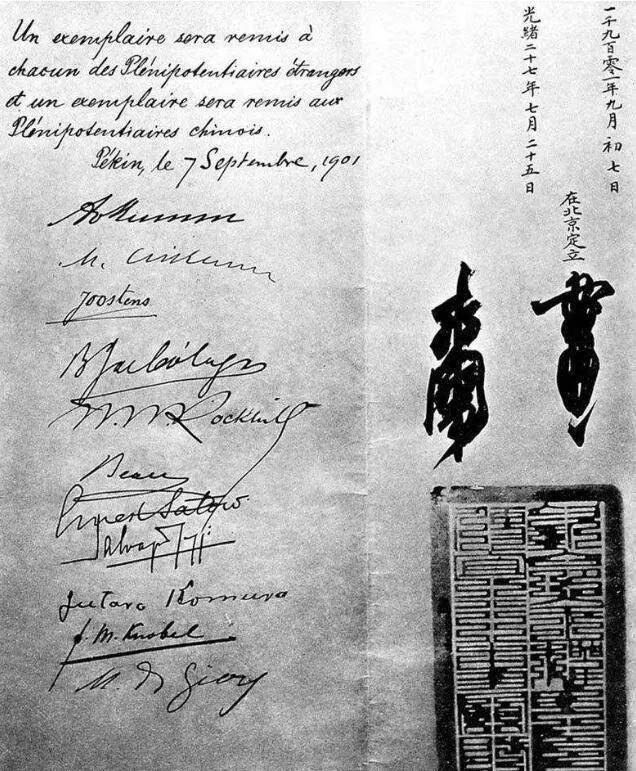 Un exemplaire sera remis à
chacun des Plénipotentiaires étrangers
et un exemplaire sera remis aux
Plénipotentiaires chinois.
Pékin, le 7 Septembre, 1901
Joostens
W. W. Rockhill
Beau
Ernest Satow
Salvago Raggi
Jutaro Komura
F. M. Knobel
M. de Giers
一千九百零一年九月初七日
在北京定立
光緒二十七年七月二十五日